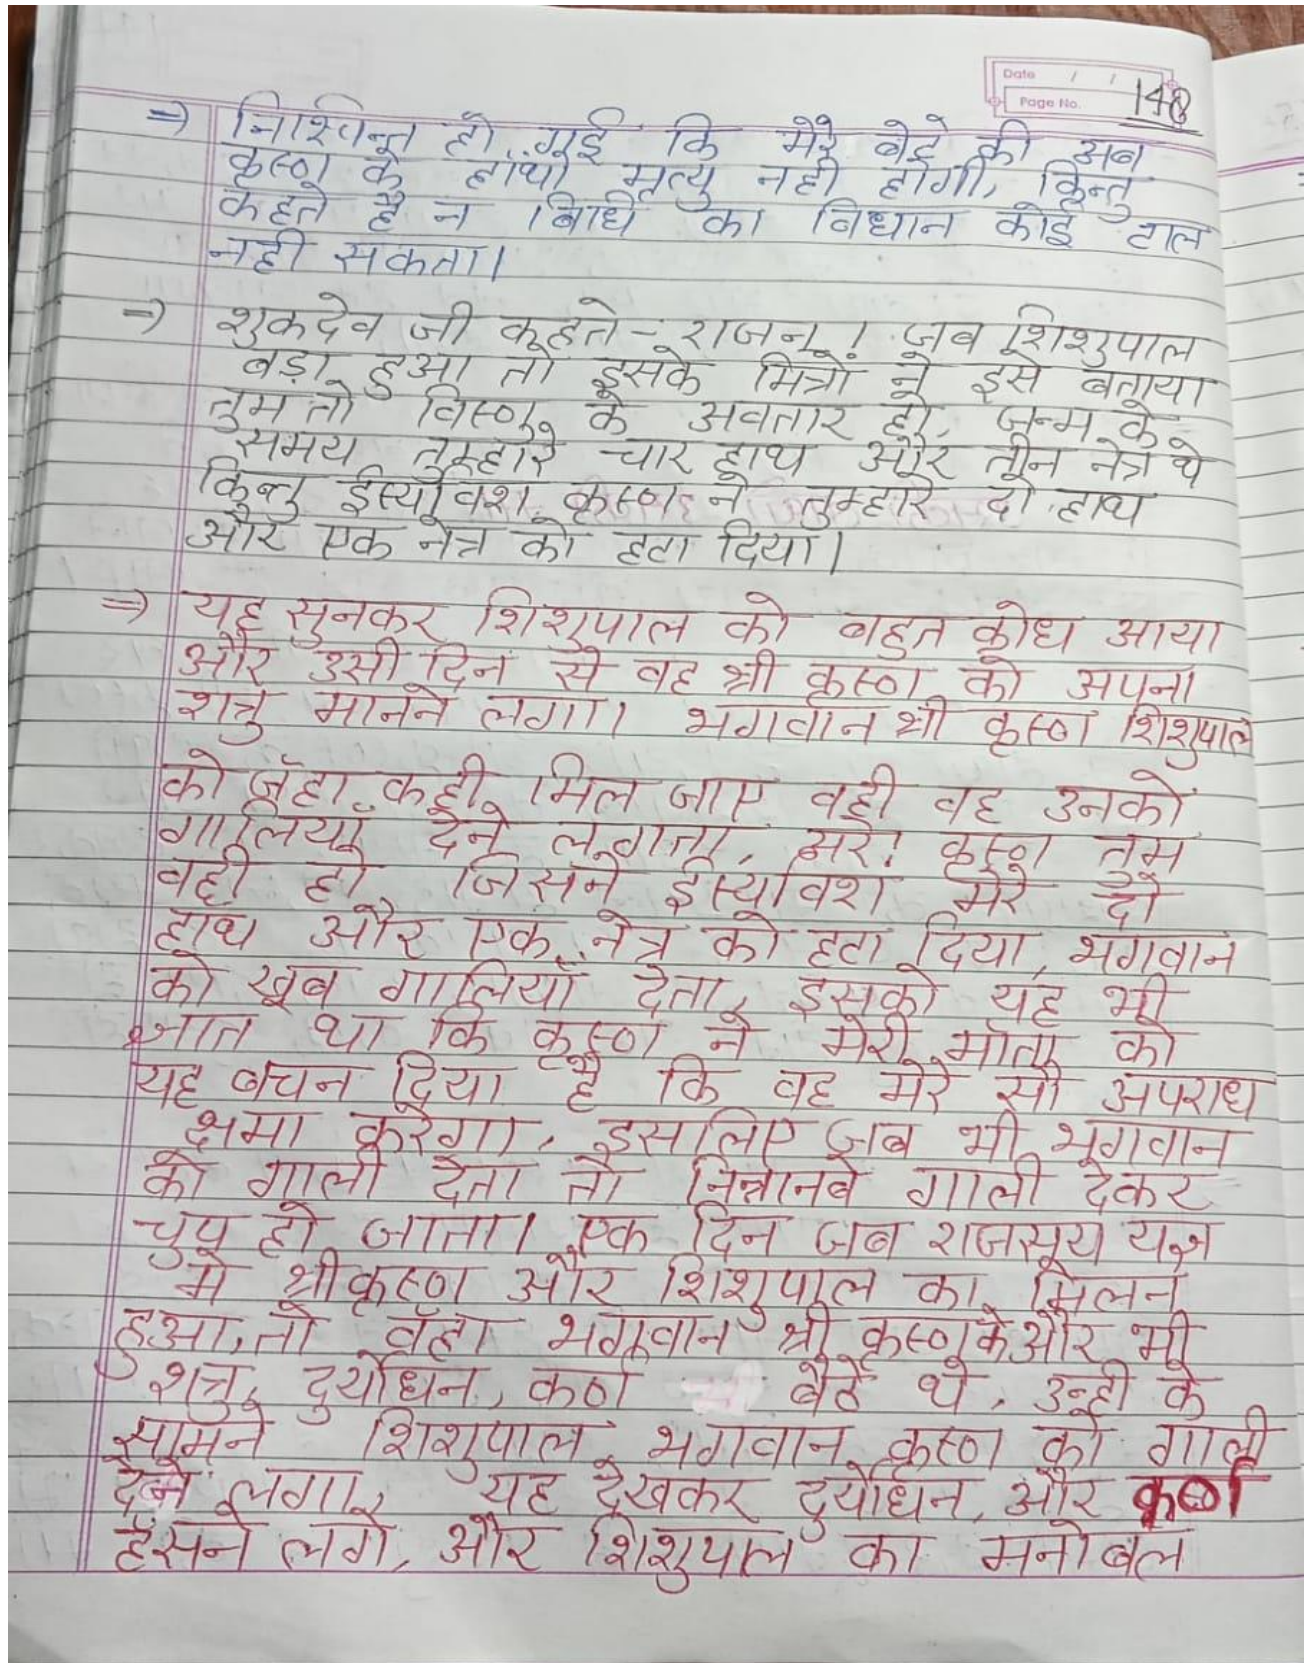 Date / /
Page No. 148
⇒ निश्चिन्त हो गई कि मेरे बेटे की अब
कृष्ण के हाँथो मृत्यु नही होगी, किन्तु
कहते है न बिधि का विधान कोई टाल
नही सकता।
⇒ शुकदेव जी कहते - राजन्! जब शिशुपाल
बड़ा हुआ तो इसके मित्रों ने इसे बताया
तुम तो विष्णु के अवतार हो, जन्म के
समय तुम्हारे चार हाथ और तीन नेत्र थे
किन्तु ईर्ष्यावश कृष्ण ने तुम्हारे दो हाथ
और एक नेत्र को हटा दिया।
⇒ यह सुनकर शिशुपाल को बहुत क्रोध आया
और उसी दिन से वह श्री कृष्ण को अपना
शत्रु मानने लगा। भगवान श्री कृष्ण शिशुपाल
को जँहा कही मिल जाए वही वह उनको
गालियाँ देने लगता, अरे! कृष्ण तुम
वही हो जिसने ईर्ष्यावश मेरे दो
हाथ और एक नेत्र को हटा दिया, भगवान
को खूब गालियाँ देता, इसको यह भी
ज्ञात था कि कृष्ण ने मेरी माँता को
यह बचन दिया है कि वह मेरे सौ अपराध
क्षमा करेगा, इसलिए जब भी भगवान
को गाली देता तो निन्नानबे गाली देकर
चुप हो जाता। एक दिन जब राजसूय यज्ञ
मे श्रीकृष्ण और शिशुपाल का मिलन
हुआ, तो वँहा भगवान श्री कृष्ण के और भी
शत्रु, दुर्योधन, कर्ण बैठे थे, उन्ही के
सामने शिशुपाल भगवान कृष्ण को गाली
देने लगा, यह देखकर दुर्योधन, और कर्ण
हँसने लगे, और शिशुपाल का मनोबल